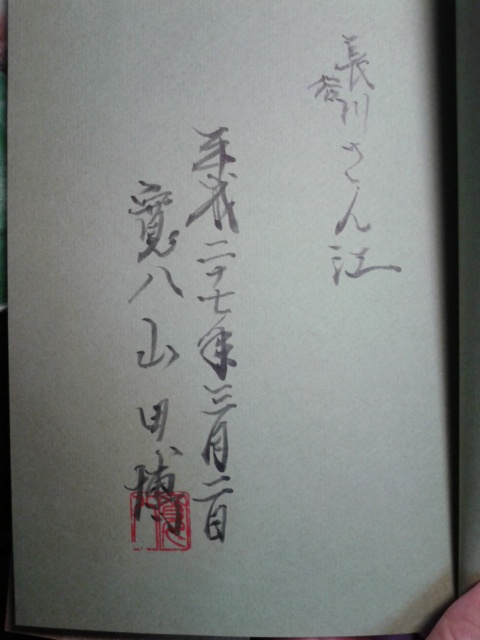 長谷川さん江
平成二十七年三月二日
寛八山田博